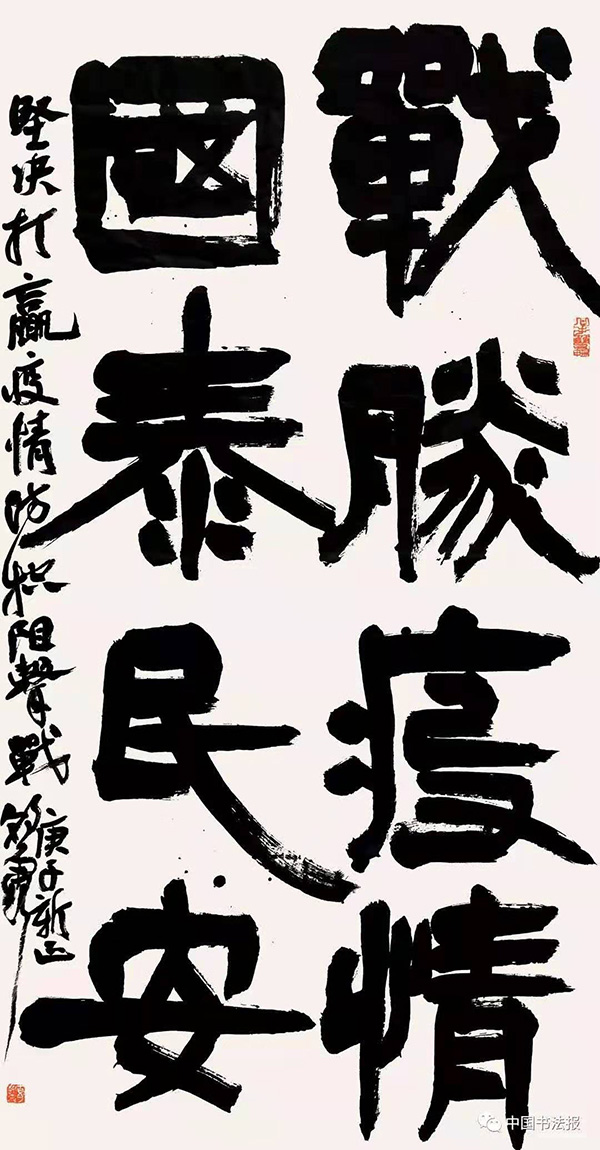 戰勝疫情
國泰民安
堅决打贏疫情防控阻擊戰
庚子新正
中国书法报